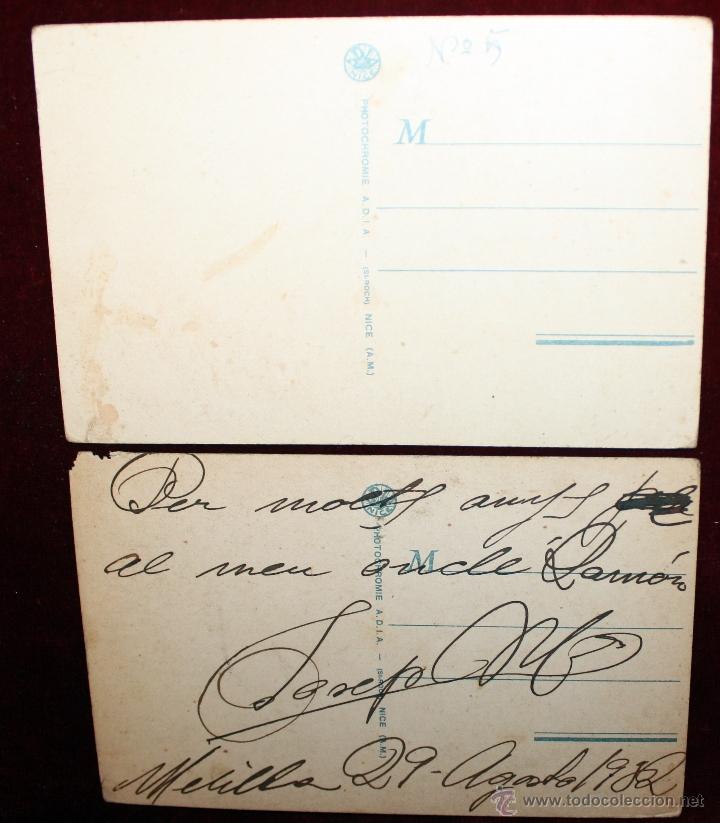 Nº 5
ADIA
NICE
PHOTOCHROMIE A.D.I.A. — (St-ROCH) NICE (A.M.)
M
Per molts anys
al meu oncle Ramón
Josep Mª
Melilla 29 - Agosto 1932
ADIA
NICE
PHOTOCHROMIE A.D.I.A. — (St-ROCH) NICE (A.M.)
M
© todocoleccion.net